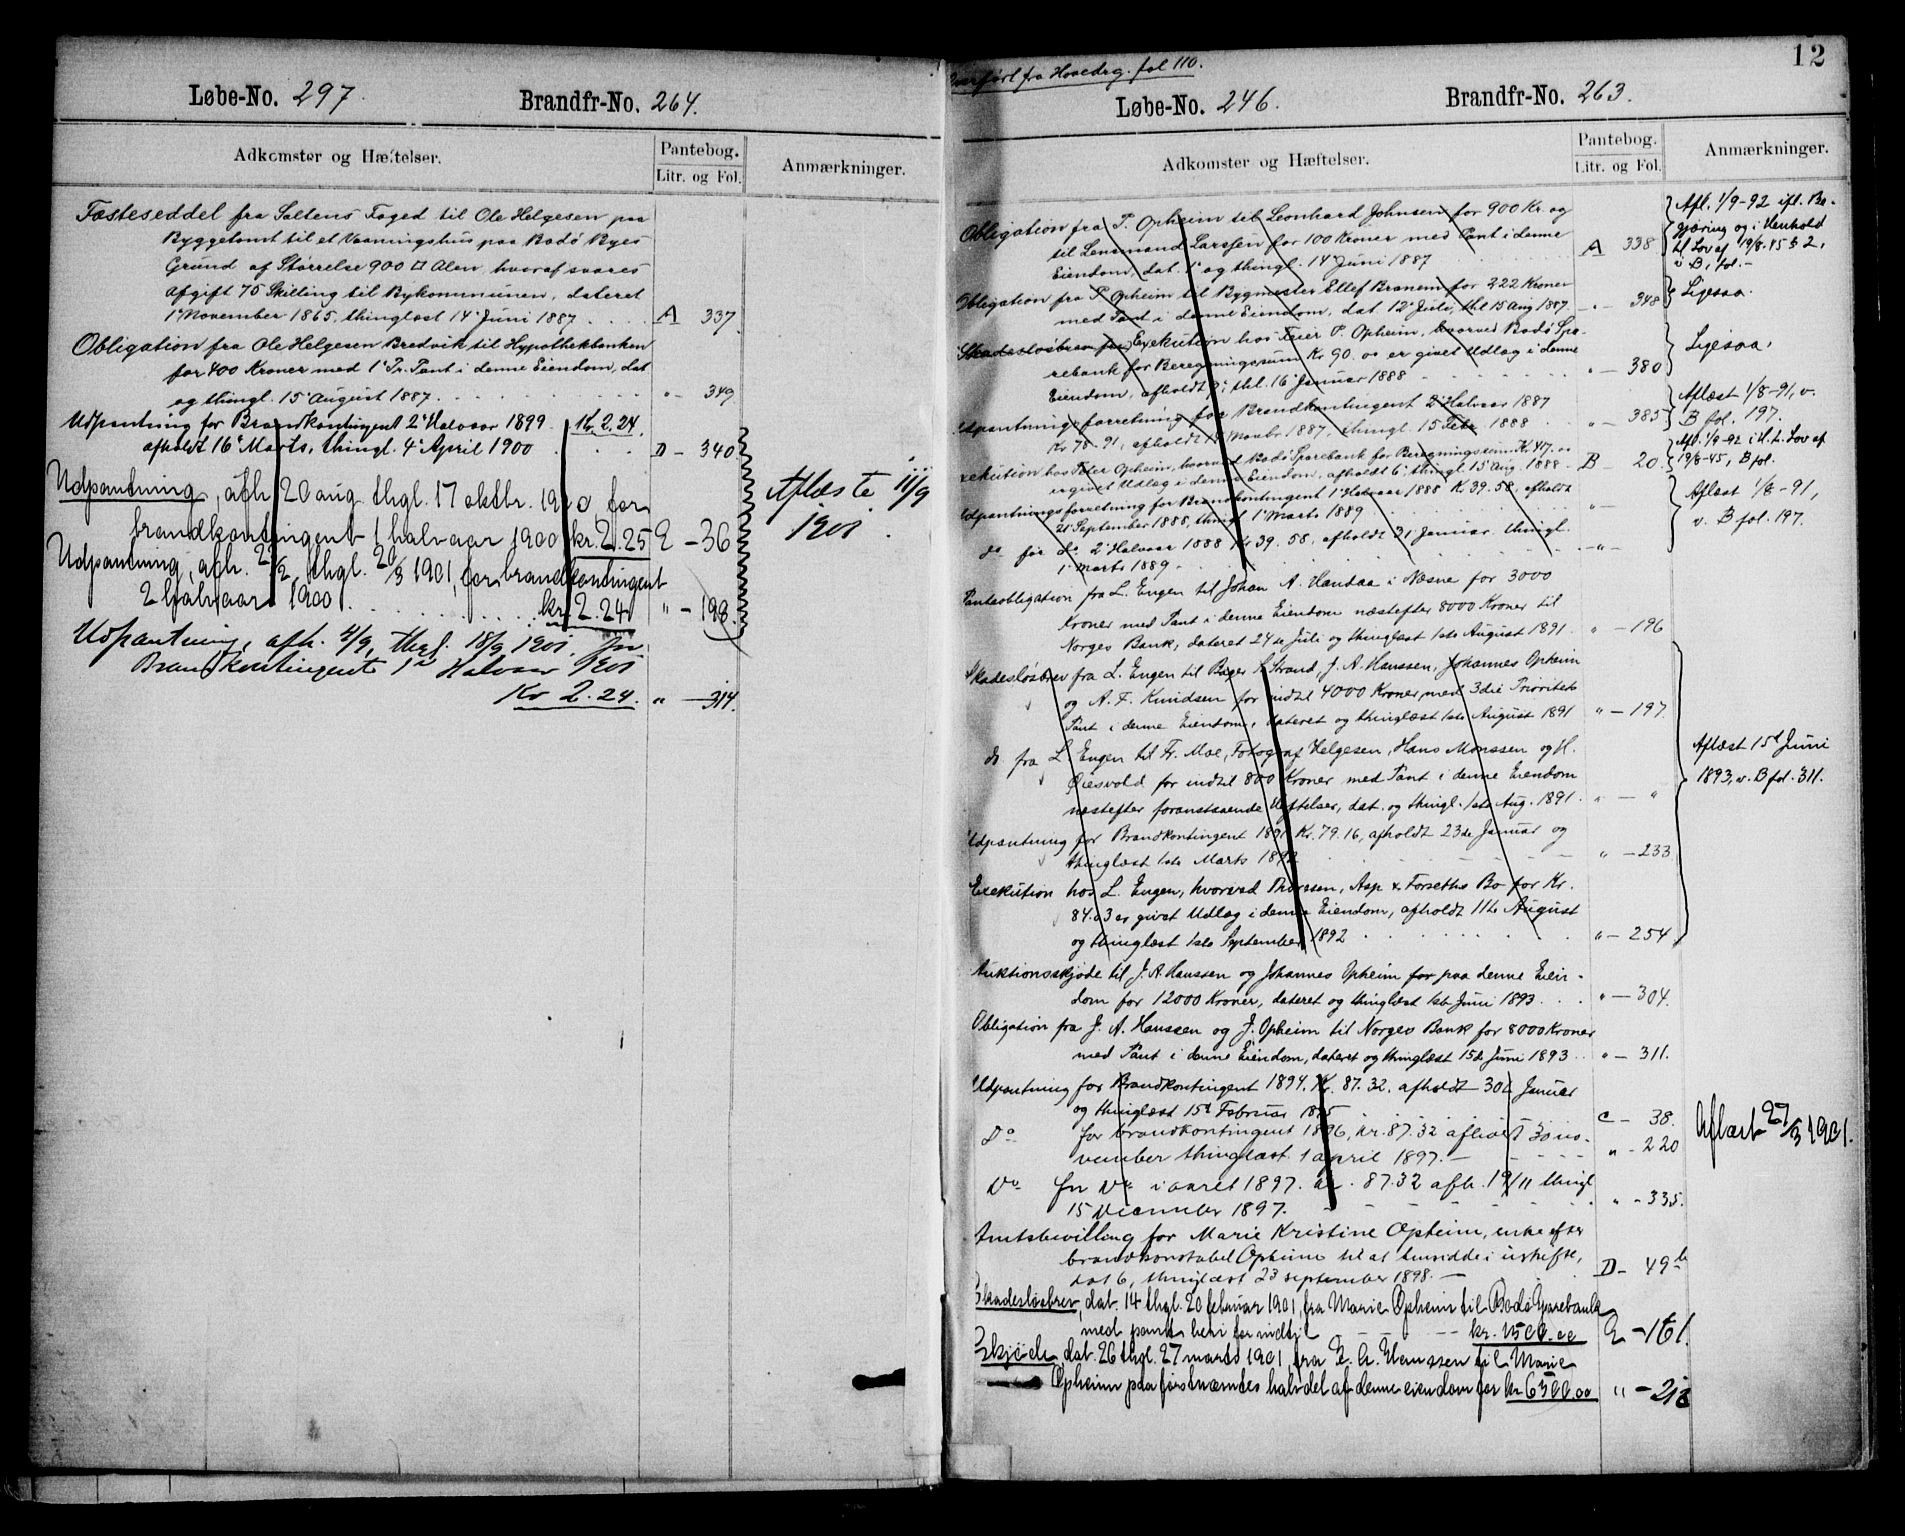 Løbe-No. 297. Brandfr-No. 264.
Adkomster og Hæftelser. Pantebog. Litr. og Fol. Anmærkninger.
Fæsteseddel fra Saltens Foged til Ole Helgesen paa
Byggetomt til et Vaaningshus paa Bodö Byes
Grund af Störrelse 900 □ Alen, hvoraf svares
Afgift 75 Skilling til Bykommunen, dateret
1' November 1865, thinglæst 14' Juni 1887 . . . . A 337.
Obligation fra Ole Helgesen Bredvik til Hypothekbanken
for 400 Kroner med 1' Pr. Pant i denne Eiendom, dat
og thingl. 15' August 1887. . . . . " - 349
Udpantning for Brandkontingent 2' Halvaar 1899 Kr. 2.24.
afholdt 16' Marts, thingl. 4' April 1900 . . . D - 340
Udpantning, afh. 20 aug. thgl. 17 oktbr. 1900, for
brandkontingent 1 halvaar 1900 kr. 2.25 E - 36
Aflæste 11/9
1901.
Udpantning, afh. 27/2, thgl. 20/3 1901, for brandkontingent
2 halvaar 1900 . . . . kr. 2.24 " - 198.
Udpantning, afh. 4/9, thgl. 18/9 1901, for
Brandkontingent 1ste Halvaar 1901
Kr 2.24. " - 314.
12
Overfört fra Hovedrg. fol 110.
Løbe-No. 246. Brandfr-No. 263.
Adkomster og Hæftelser. Pantebog. Litr. og Fol. Anmærkninger.
Obligation fra P. Opheim til Leonhard Johnsen for 900 Kr. og
til Lensmand Larssen for 100 Kroner med Pant i denne
Eiendom, dat. 1' og thingl. 14' Juni 1887 . . . A 338
Afl. 1/9-92 ifl. Be-
gjæring og i Henhold
til Lov af 19/8-45 § 2,
v. B, fol. -
Obligation fra P. Opheim til Bygmester Ellef Branem for 222 Kroner
med Pant i denne Eiendom, dat 12' Juli, thl 15 Aug 1887 " - 348
Ligesaa.
Skadeslösbrev fra Exekution hos Peter P. Opheim, hvorved Bodö Spa-
rebank for Beregningssum Kr. 90. oo er givet Udlæg i denne
Eiendom, afholdt 9' thl. 16' Januar 1888 . . . " - 380
Ligesaa.
Udpantningsforretning for Brandkontingent 2' Halvaar 1887
Kr. 78-91, afholdt 18' Novbr. 1887, thingl. 15 Febr. 1888 . . " - 385
Aflæst 1/8-91, v.
B fol. 197.
Exekution hos Peter Opheim, hvorved Bodö Sparebank for Beregningssum Kr. 417. oo
er givet Udlæg i denne Eiendom, afholdt 6' thingl 15' Aug. 1888 - B - 20.
Afl. 1/9-92 i H. t. Lov af
19/8-45, B fol.
Udpantningsforretning for Brandkontingent 1' Halvaar 1888 Kr 39. 58, afholdt
21' September 1888, thingl 1' Marts 1889 . . . " -
Aflæst 1/8-91,
v. B fol. 197.
do for do 2' Halvaar 1888 Kr 39. 58, afholdt 31' Januar thingl.
1' Marts 1889 - . . . " - "
Panteobligation fra L. Engen til Johan A. Handaa i Næsne for 3000
Kroner med Pant i denne Eiendom næstefter 8000 Kroner til
Norges Bank, dateret 24de Juli og thinglæst 1ste August 1891. " - 196
Skadeslösbrev fra L. Engen til Bager K Strand, J. A. Hanssen, Johannes Opheim
og A. F. Knudsen for indtil 4000 Kroner med 3die Prioritets
Pant i denne Eiendom, dateret og thinglæst 1ste August 1891 " - 197.
do fra L. Engen til Fr. Moe, Fotograf Helgesen, Hans Monssen og H.
Öiesvold for indtil 800 Kroner med Pant i denne Eiendom
næstefter foranstaaende Heftelser, dat. og thingl. 1ste Aug. 1891. " - "
Aflæst 15de Juni
1893, v. B fol. 311.
Udpantning for Brandkontingent 1891 Kr. 79. 16, afholdt 23de Januar og
thinglæst 1ste Marts 1892 . . . " - 233
Exekution hos L. Engen, hvorved Thoresen, Asp & Forseths Bo for Kr.
84. 03 er givet Udlæg i denne Eiendom, afholdt 11te August
og thinglæst 1ste September 1892 . . . . " - 254
Auktionsskjöde til J. A. Hanssen og Johannes Opheim for paa denne Eien-
dom for 12000 Kroner, dateret og thinglæst 1ste Juni 1893. . . " - 304.
Obligation fra J. A. Hanssen og J. Opheim til Norges Bank for 8000 Kroner
med Pant i denne Eiendom, dateret og thinglæst 15de Juni 1893 . . " - 311.
Udpantning for Brandkontingent 1894. Kr. 87. 32. afholdt 30te Januar
og thinglæst 15de Februar 1895 C - 38.
Do for brandkontingent 1896, kr. 87.32 afholdt 30 no-
vember thinglæst. 1 april 1897. - - - - " - 220
Aflæst 27/3 1901.
Do for Do i aaret 1897. kr. 87.32 afh. 19/11 thingl
15 December 1897. - - - " - 335.
Amtsbevilling for Marie Kristine Opheim, enke efter
brandkonstabel Opheim til at hensidde i uskifte,
dat 6, thinglæst 23 september 1898. - D - 49 b
Skadeslösbrev, dat. 14 thgl. 20 februar 1901, fra Marie Opheim til Bodö Sparebank
med pant heri for indtil - - - kr. 1500.00 E - 161.
Skjöde, dat. 26 thgl. 27 marts 1901, fra J. A. Hanssen til Marie
Opheim paa førstnævntes halvdel af denne eiendom for kr 6500.00 " - 218